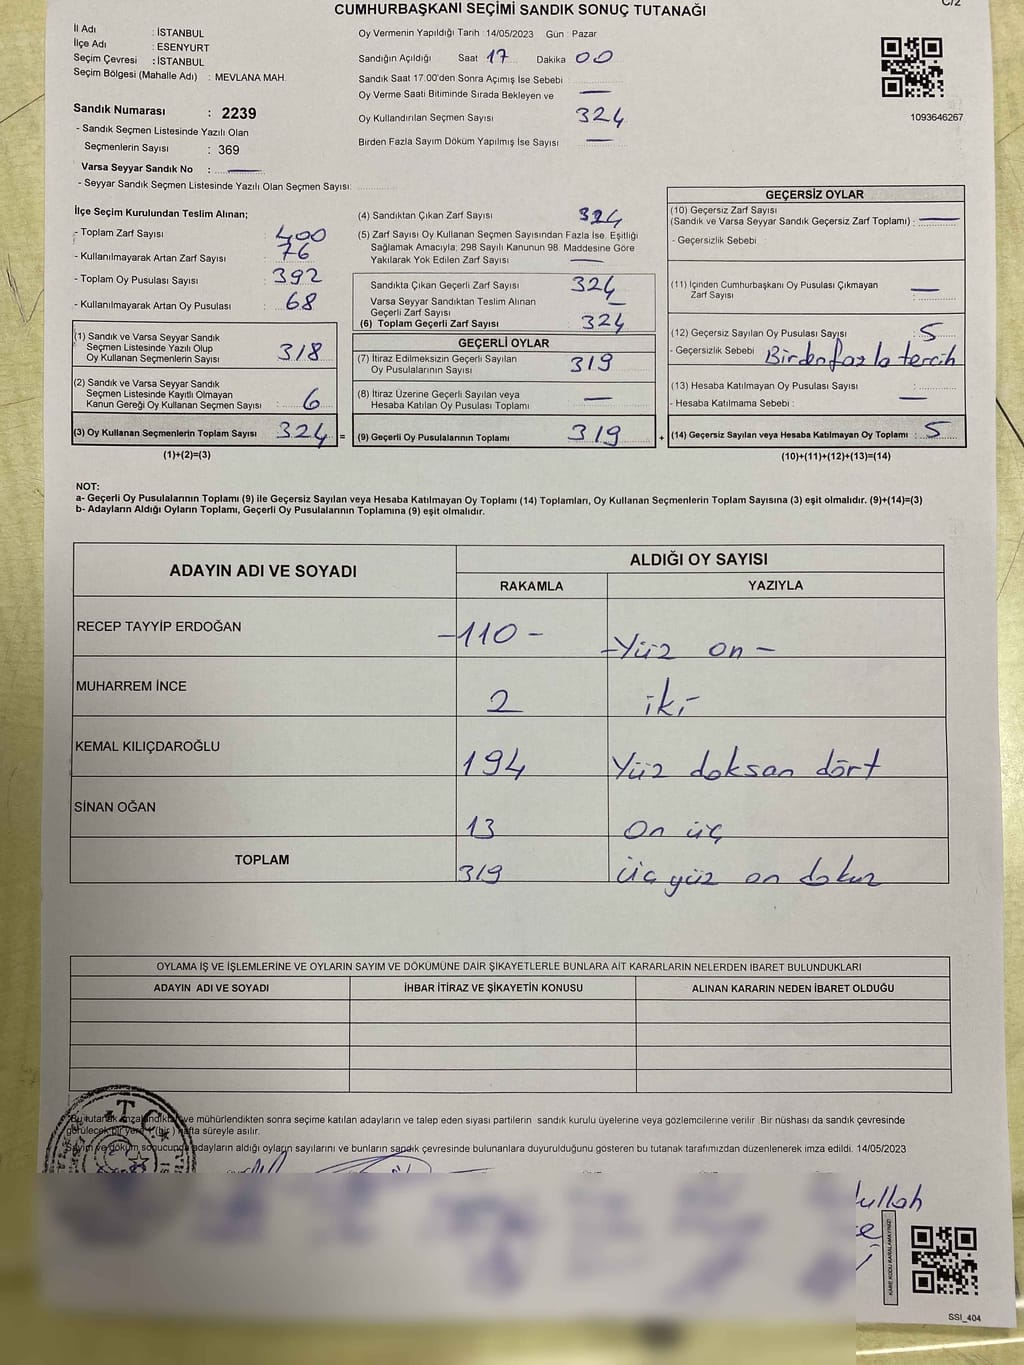 C/2
CUMHURBAŞKANI SEÇİMİ SANDIK SONUÇ TUTANAĞI
İl Adı : İSTANBUL
İlçe Adı : ESENYURT
Seçim Çevresi : İSTANBUL
Seçim Bölgesi (Mahalle Adı) : MEVLANA MAH.
Sandık Numarası : 2239
- Sandık Seçmen Listesinde Yazılı Olan
Seçmenlerin Sayısı : 369
Varsa Seyyar Sandık No : —
- Seyyar Sandık Seçmen Listesinde Yazılı Olan Seçmen Sayısı:
Oy Vermenin Yapıldığı Tarih : 14/05/2023 Gün : Pazar
Sandığın Açıldığı Saat 17 Dakika 00
Sandık Saat 17.00'den Sonra Açımış İse Sebebi
Oy Verme Saati Bitiminde Sırada Bekleyen ve —
Oy Kullandırılan Seçmen Sayısı 324
Birden Fazla Sayım Döküm Yapılmış İse Sayısı —
1093646267
İlçe Seçim Kurulundan Teslim Alınan;
- Toplam Zarf Sayısı : 400
- Kullanılmayarak Artan Zarf Sayısı : 76
- Toplam Oy Pusulası Sayısı : 392
- Kullanılmayarak Artan Oy Pusulası : 68
(1) Sandık ve Varsa Seyyar Sandık
Seçmen Listesinde Yazılı Olup
Oy Kullanan Seçmenlerin Sayısı : 318
(2) Sandık ve Varsa Seyyar Sandık
Seçmen Listesinde Kayıtlı Olmayan
Kanun Gereği Oy Kullanan Seçmen Sayısı : 6
(3) Oy Kullanan Seçmenlerin Toplam Sayısı : 324 =
(1)+(2)=(3)
(4) Sandıktan Çıkan Zarf Sayısı 324
(5) Zarf Sayısı Oy Kullanan Seçmen Sayısından Fazla İse, Eşitliği
Sağlamak Amacıyla; 298 Sayılı Kanunun 98. Maddesine Göre
Yakılarak Yok Edilen Zarf Sayısı —
Sandıkta Çıkan Geçerli Zarf Sayısı 324
Varsa Seyyar Sandıktan Teslim Alınan
Geçerli Zarf Sayısı —
(6) Toplam Geçerli Zarf Sayısı 324
GEÇERLİ OYLAR
(7) İtiraz Edilmeksizin Geçerli Sayılan
Oy Pusulalarının Sayısı 319
(8) İtiraz Üzerine Geçerli Sayılan veya
Hesaba Katılan Oy Pusulası Toplamı —
(9) Geçerli Oy Pusulalarının Toplamı 319 +
GEÇERSİZ OYLAR
(10) Geçersiz Zarf Sayısı
(Sandık ve Varsa Seyyar Sandık Geçersiz Zarf Toplamı) : —
- Geçersizlik Sebebi :
(11) İçinden Cumhurbaşkanı Oy Pusulası Çıkmayan
Zarf Sayısı : —
(12) Geçersiz Sayılan Oy Pusulası Sayısı : 5
- Geçersizlik Sebebi : Birden fazla tercih
(13) Hesaba Katılmayan Oy Pusulası Sayısı :
- Hesaba Katılmama Sebebi : —
(14) Geçersiz Sayılan veya Hesaba Katılmayan Oy Toplamı : 5
(10)+(11)+(12)+(13)=(14)
NOT:
a- Geçerli Oy Pusulalarının Toplamı (9) ile Geçersiz Sayılan veya Hesaba Katılmayan Oy Toplamı (14) Toplamları, Oy Kullanan Seçmenlerin Toplam Sayısına (3) eşit olmalıdır. (9)+(14)=(3)
b- Adayların Aldığı Oyların Toplamı, Geçerli Oy Pusulalarının Toplamına (9) eşit olmalıdır.
ADAYIN ADI VE SOYADI ALDIĞI OY SAYISI
RAKAMLA YAZIYLA
RECEP TAYYİP ERDOĞAN -110- -Yüz on-
MUHARREM İNCE 2 iki
KEMAL KILIÇDAROĞLU 194 Yüz doksan dört
SİNAN OĞAN 13 On üç
TOPLAM 319 üç yüz on dokuz
OYLAMA İŞ VE İŞLEMLERİNE VE OYLARIN SAYIM VE DÖKÜMÜNE DAİR ŞİKAYETLERLE BUNLARA AİT KARARLARIN NELERDEN İBARET BULUNDUKLARI
ADAYIN ADI VE SOYADI İHBAR İTİRAZ VE ŞİKAYETİN KONUSU ALINAN KARARIN NEDEN İBARET OLDUĞU
T.C.
Bu tutanak imzalandıktan ve mühürlendikten sonra seçime katılan adayların ve talep eden siyasi partilerin sandık kurulu üyelerine veya gözlemcilerine verilir. Bir nüshası da sandık çevresinde
görülecek bir yere 1 (bir) hafta süreyle asılır.
Sayım ve döküm sonucunda adayların aldığı oyların sayılarını ve bunların sandık çevresinde bulunanlara duyurulduğunu gösteren bu tutanak tarafımızdan düzenlenerek imza edildi. 14/05/2023
ullah
KARE KODU KARALAMAYINIZ!
SSI_404